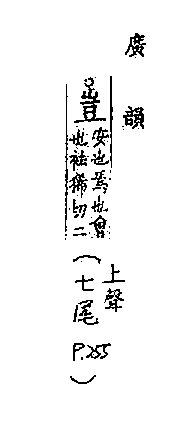 廣韻
豈
安也焉也曾
也袪狶切二
(七尾 P.255)
上聲